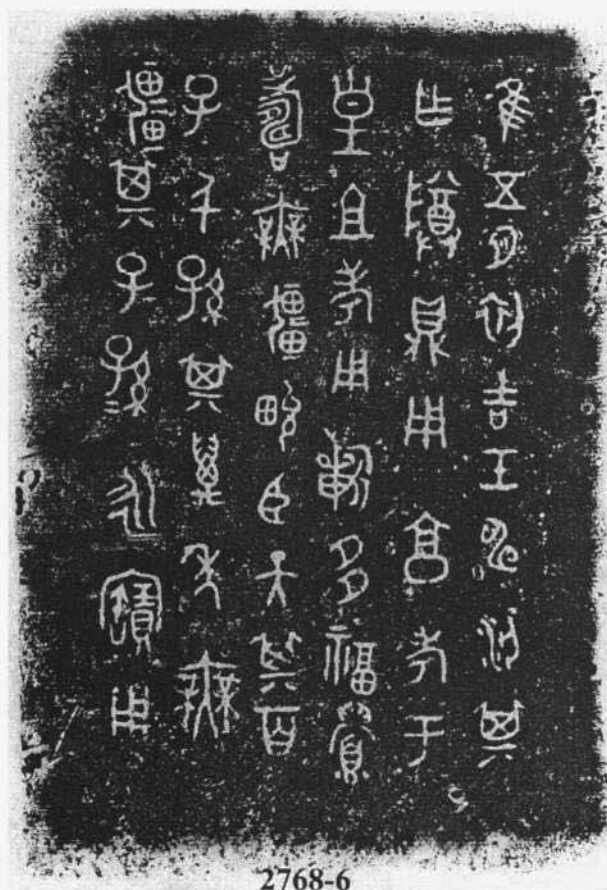 隹五月初吉壬申梁其
乍尊鼎用亯考于
皇且考用𣄨多福眉
壽無疆畯臣天其百
子千孫其萬年無
疆其子子孫孫永寶用
2768-6